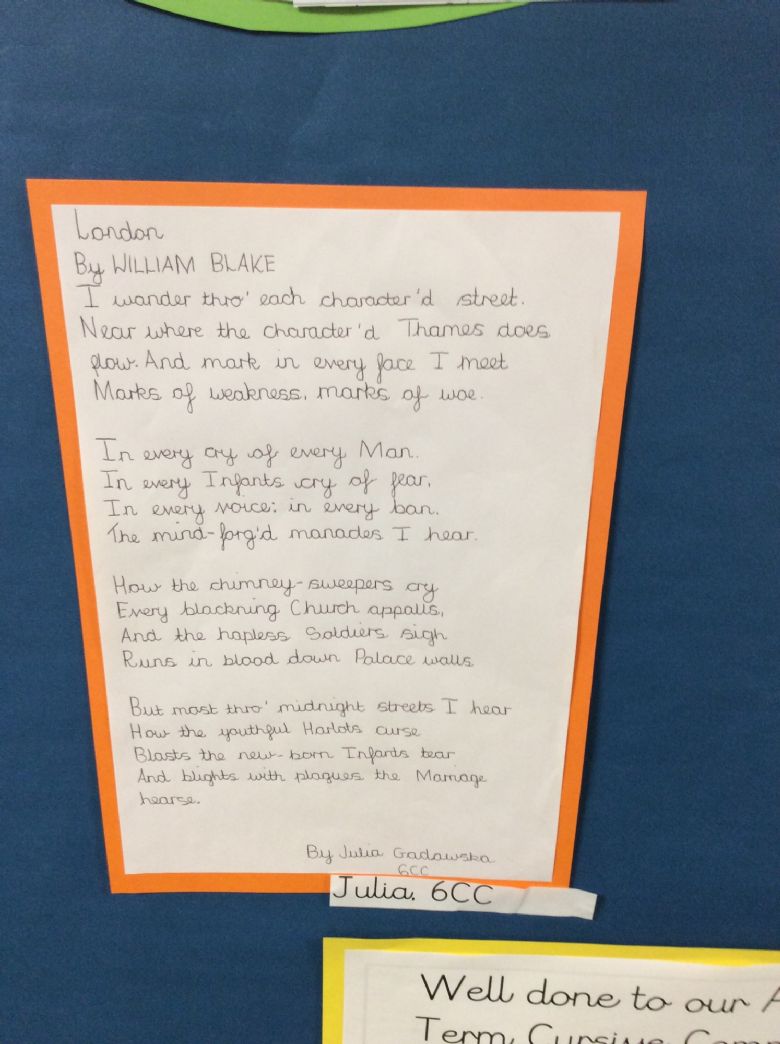 London
By WILLIAM BLAKE
I wander thro' each character'd street.
Near where the character'd Thames does
flow. And mark in every face I meet
Marks of weakness, marks of woe.
In every cry of every Man.
In every Infants cry of fear,
In every voice: in every ban.
The mind-forg'd manacles I hear.
How the chimney-sweepers cry
Every blackning Church appalls,
And the hapless Soldiers sigh
Runs in blood down Palace walls
But most thro' midnight streets I hear
How the youthful Harlots curse
Blasts the new-born Infants tear
And blights with plagues the Marriage
hearse.
By Julia Gadawska
6CC
Julia. 6CC
Well done to our A
Term Cursive